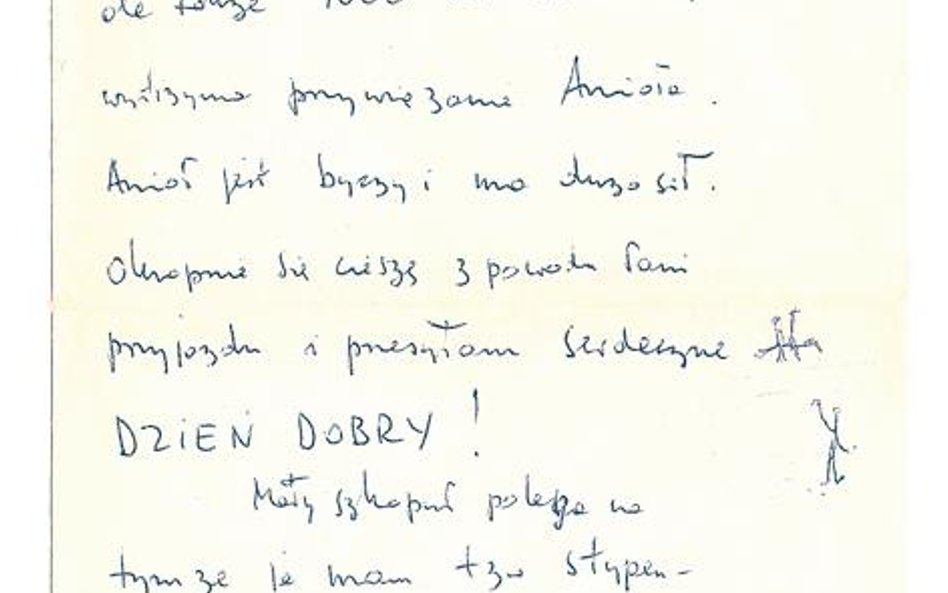 wyliżymo przywiezione Anioła.
Anioł jest byczy i ma dużo sił.
Okropnie się cieszę z powodu Pani
przyjazdu i przesyłam serdeczne
DZIEŃ DOBRY!
Mały szkopuł polega na
tym że ja mam tzw stypen-